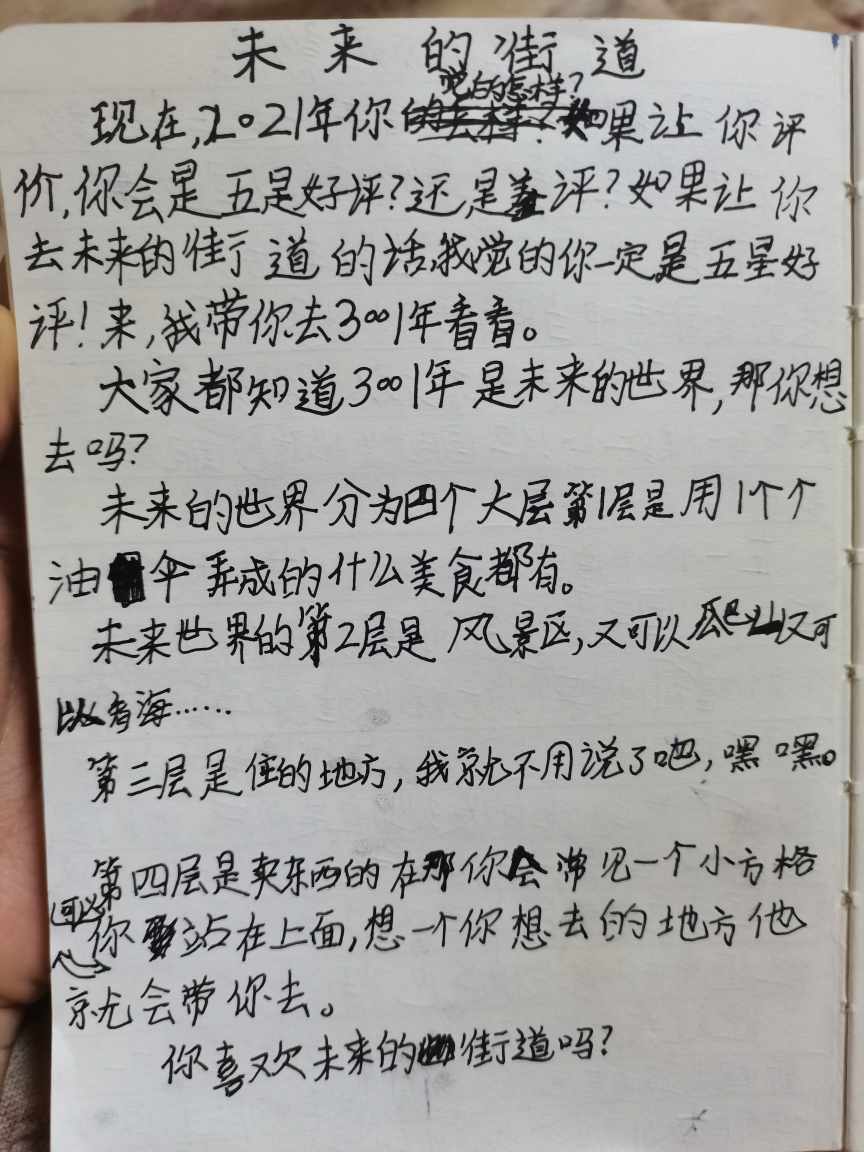 未来的街道
现在,2021年你觉的怎样?如果让你评
价,你会是五星好评?还是差评?如果让你
去未来的街道的话,我觉的你一定是五星好
评!来,我带你去3001年看看。
大家都知道3001年是未来的世界,那你想
去吗?
未来的世界分为四个大层第1层是用1个个
油伞弄成的什么美食都有。
未来世界的第2层是风景区,又可以爬山又可
以看海……
第三层是住的地方,我就不用说了吧,嘿嘿。
第四层是卖东西的在那你会常见一个小方格
你可以站在上面,想一个你想去的地方他
就会带你去。
你喜欢未来的街道吗?